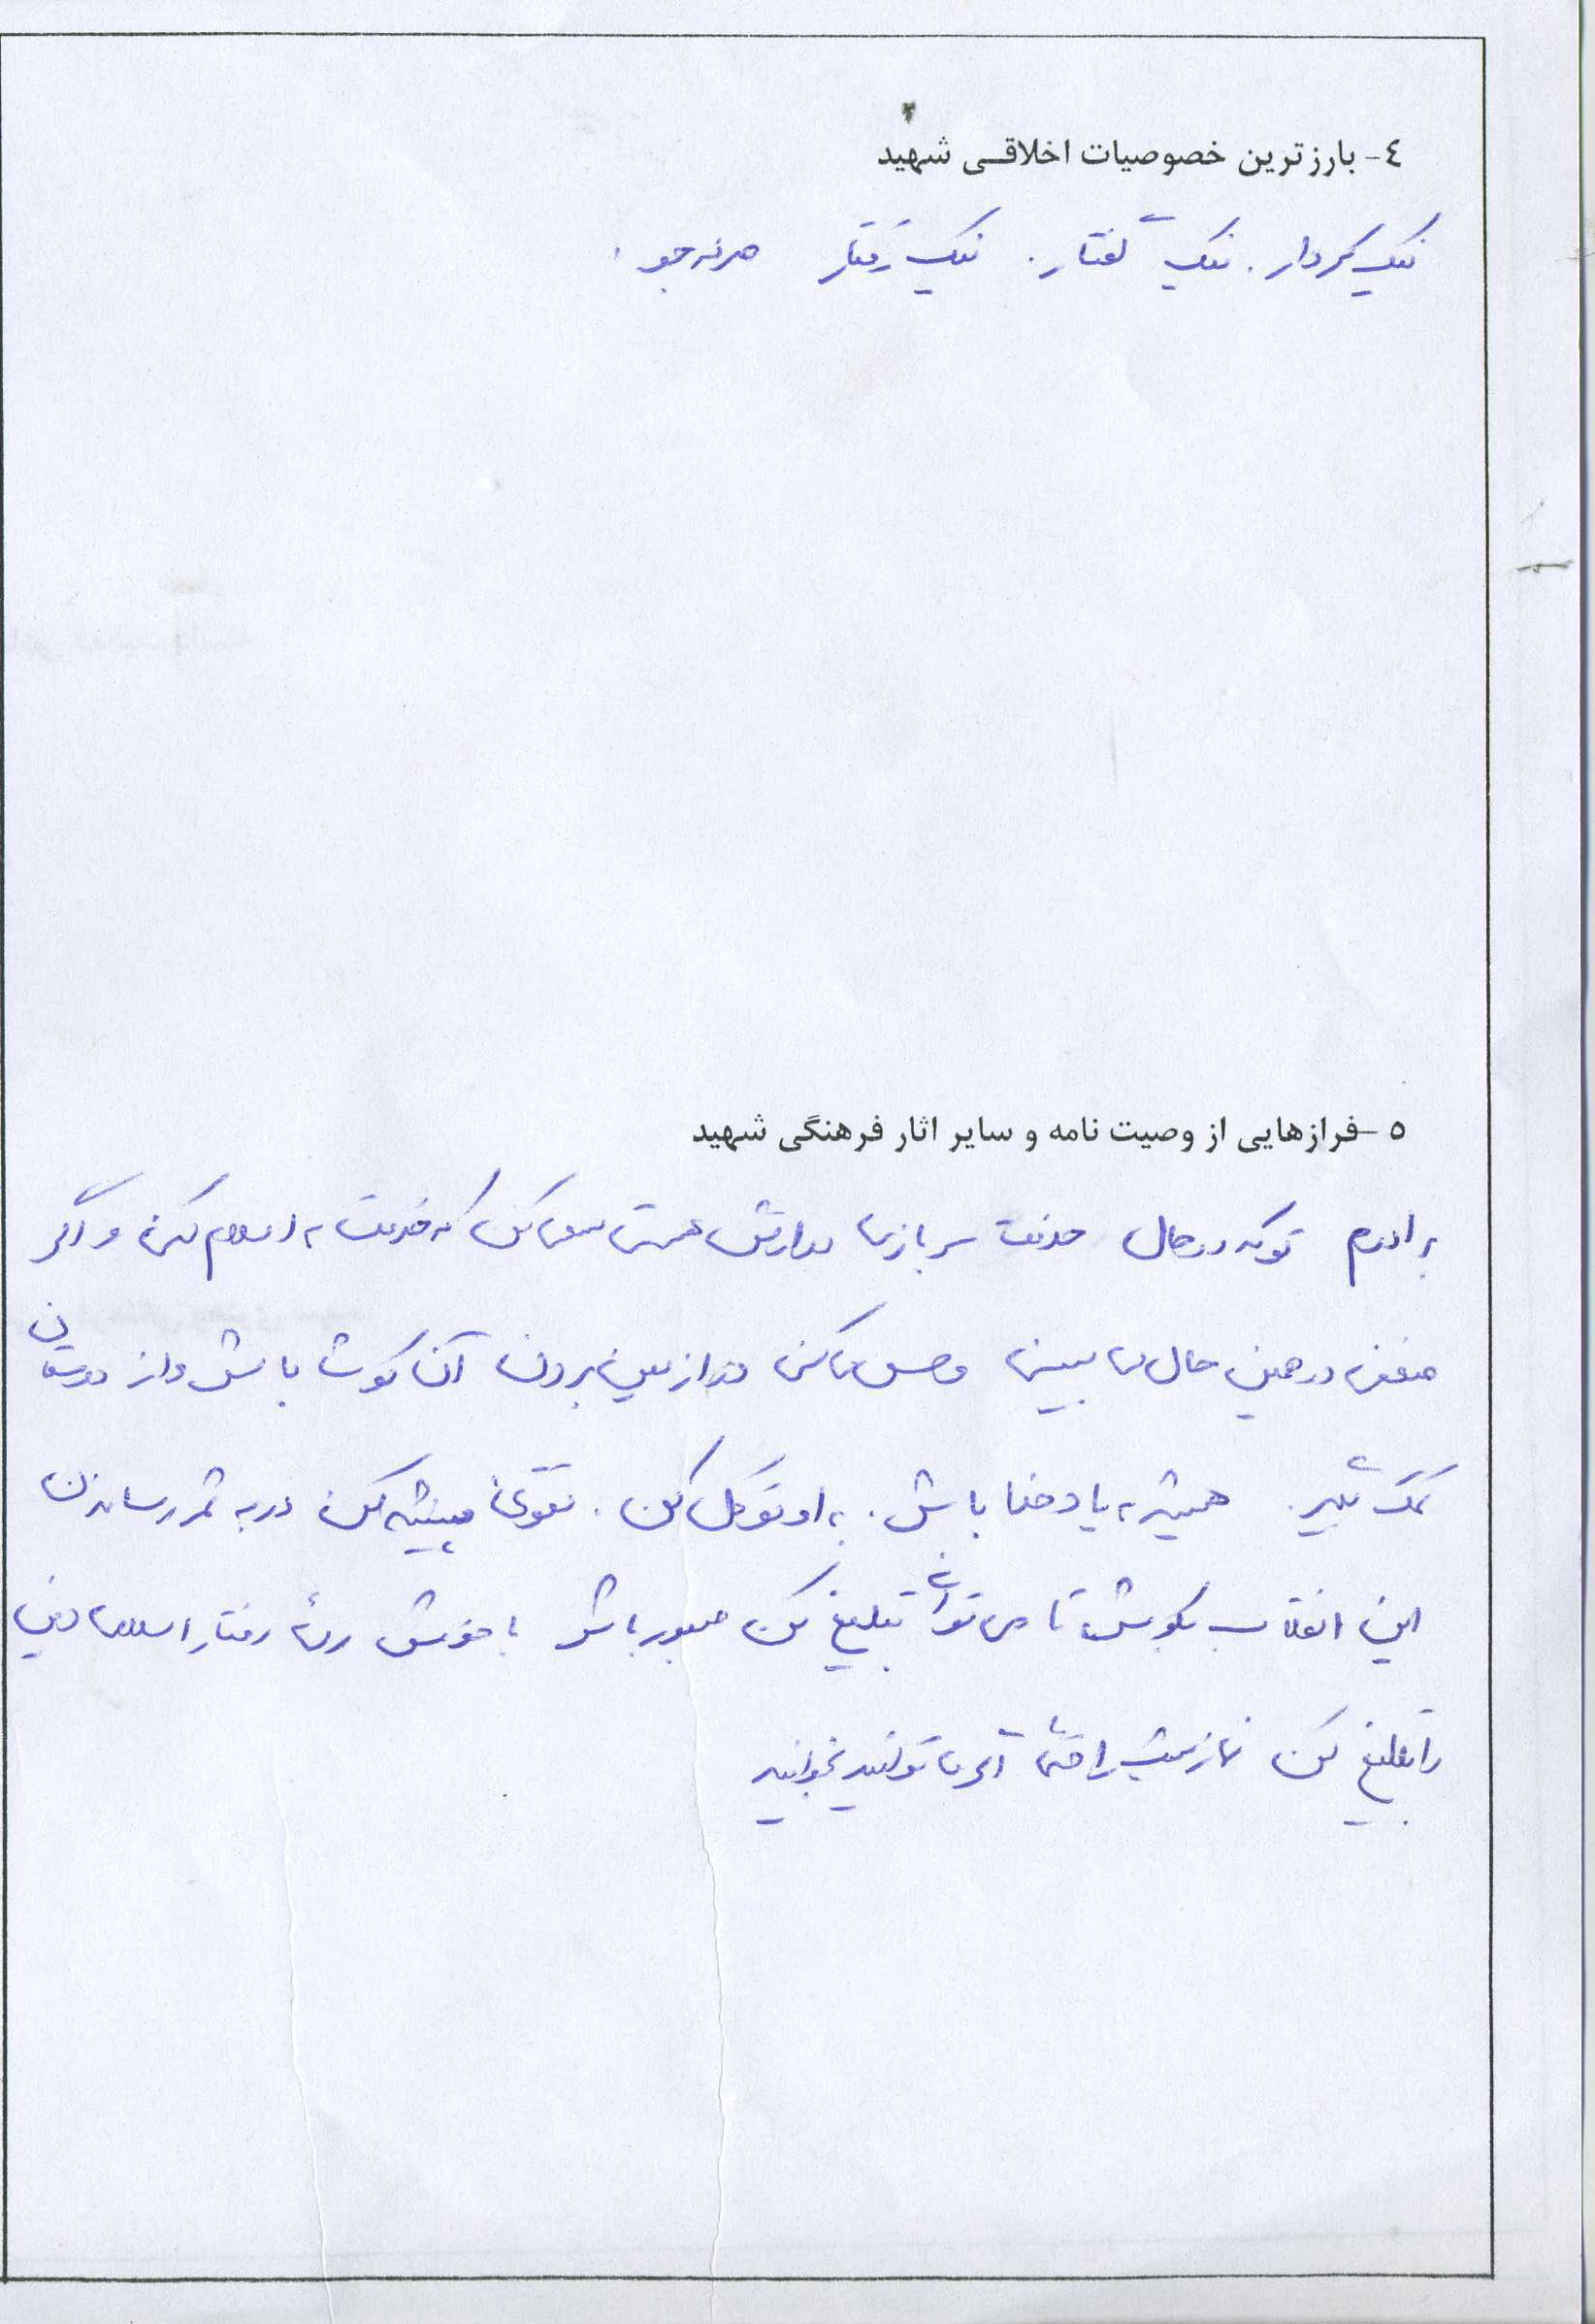 ٤- بارزترین خصوصیات اخلاقی شهید
نیک کردار. نیک گفتار. نیک رفتار صرفه جو.
٥- فرازهایی از وصیت نامه و سایر اثار فرهنگی شهید
برادرم تو که در حال خدمت سربازی در ارتش هستی سعی کن که خدمت به اسلام کنی و اگر
ضعفی در همین حال می بینی و حس می کنی در از بین بردن آن کوشا باش و از دوستان
کمک بگیر. همیشه به یاد خدا باش. به او توکل کن. تقوی پیشه کن در به ثمر رساندن
این انقلاب بکوش تا می توانی تبلیغ کن صبور باش با خویش رفتار اسلامی دین
را تبلیغ کن نماز شب را حتما اگر می توانید بخوانید